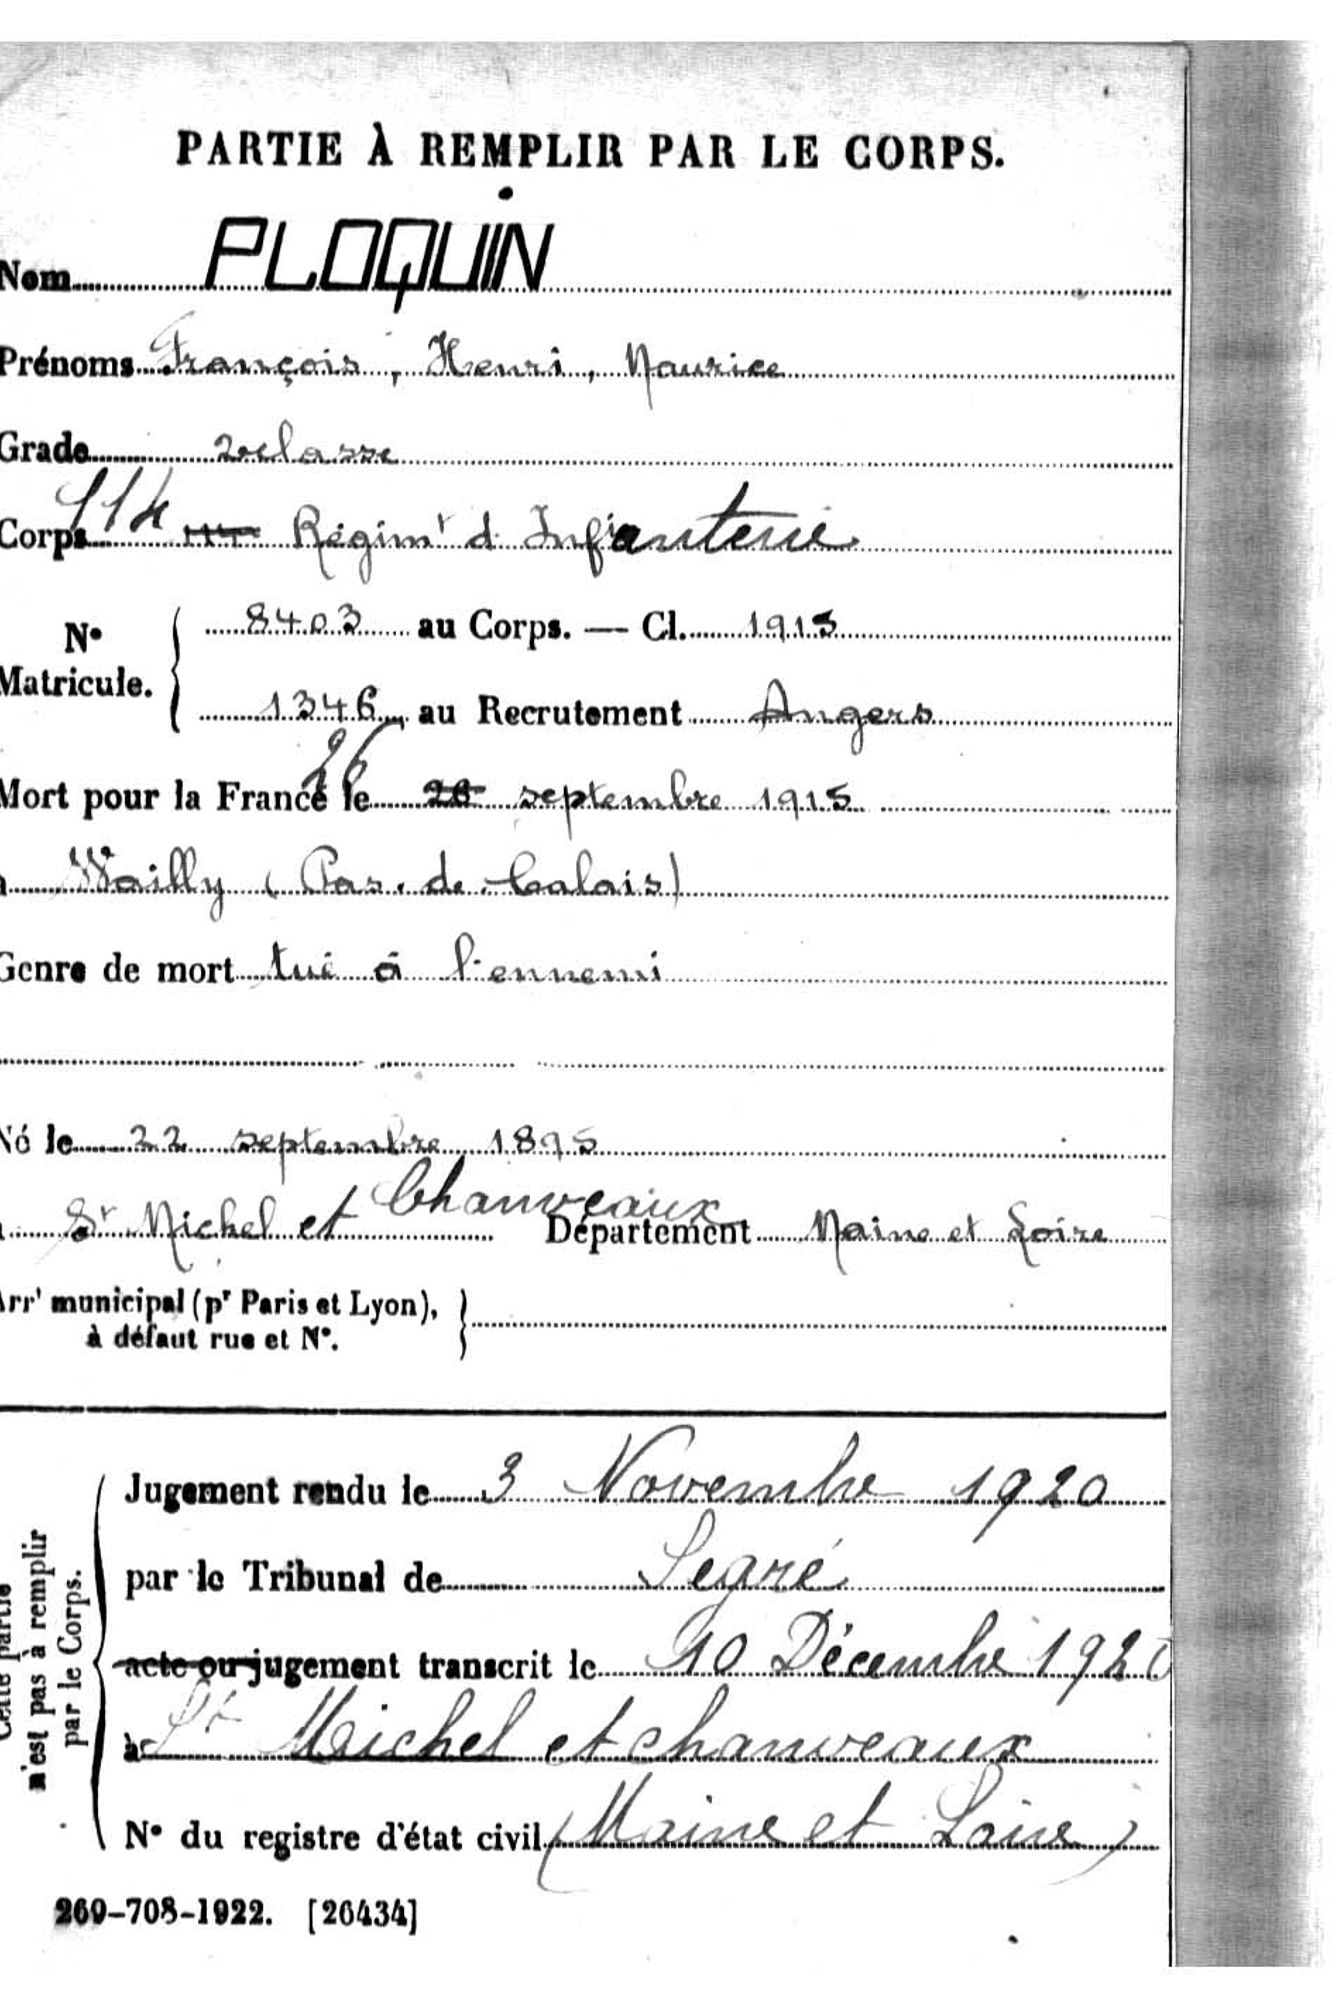 PARTIE À REMPLIR PAR LE CORPS.
Nom PLOQUIN
Prénoms François, Henri, Maurice
Grade 2e classe
Corps 114 Régimt d Infanterie
N° Matricule. 8403 au Corps. — Cl. 1915
1346 au Recrutement Angers
Mort pour la France le 26 septembre 1915
Wailly (Pas. de. Calais)
Genre de mort tué à l'ennemi
Né le 22 septembre 1895
St Michel et Chanveaux Département Maine et Loire
Arrt municipal (pr Paris et Lyon),
à défaut rue et N°.
Cette partie
n'est pas à remplir
par le Corps.
Jugement rendu le 3 Novembre 1920
par le Tribunal de Segré
acte ou jugement transcrit le 10 Décembre 1920
à St Michel et chanveaux
N° du registre d'état civil (Maine et Loire)
269-708-1922. [26434]